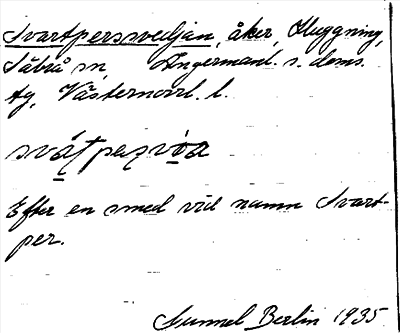 Svartpersvedjan, åker, Huggning,
Säbrå sn, Ångermanl. s. doms.
tg, Västernorrl. l.
Efter en smed vid namn Svart-
per.
Gunnel Berlin 1935